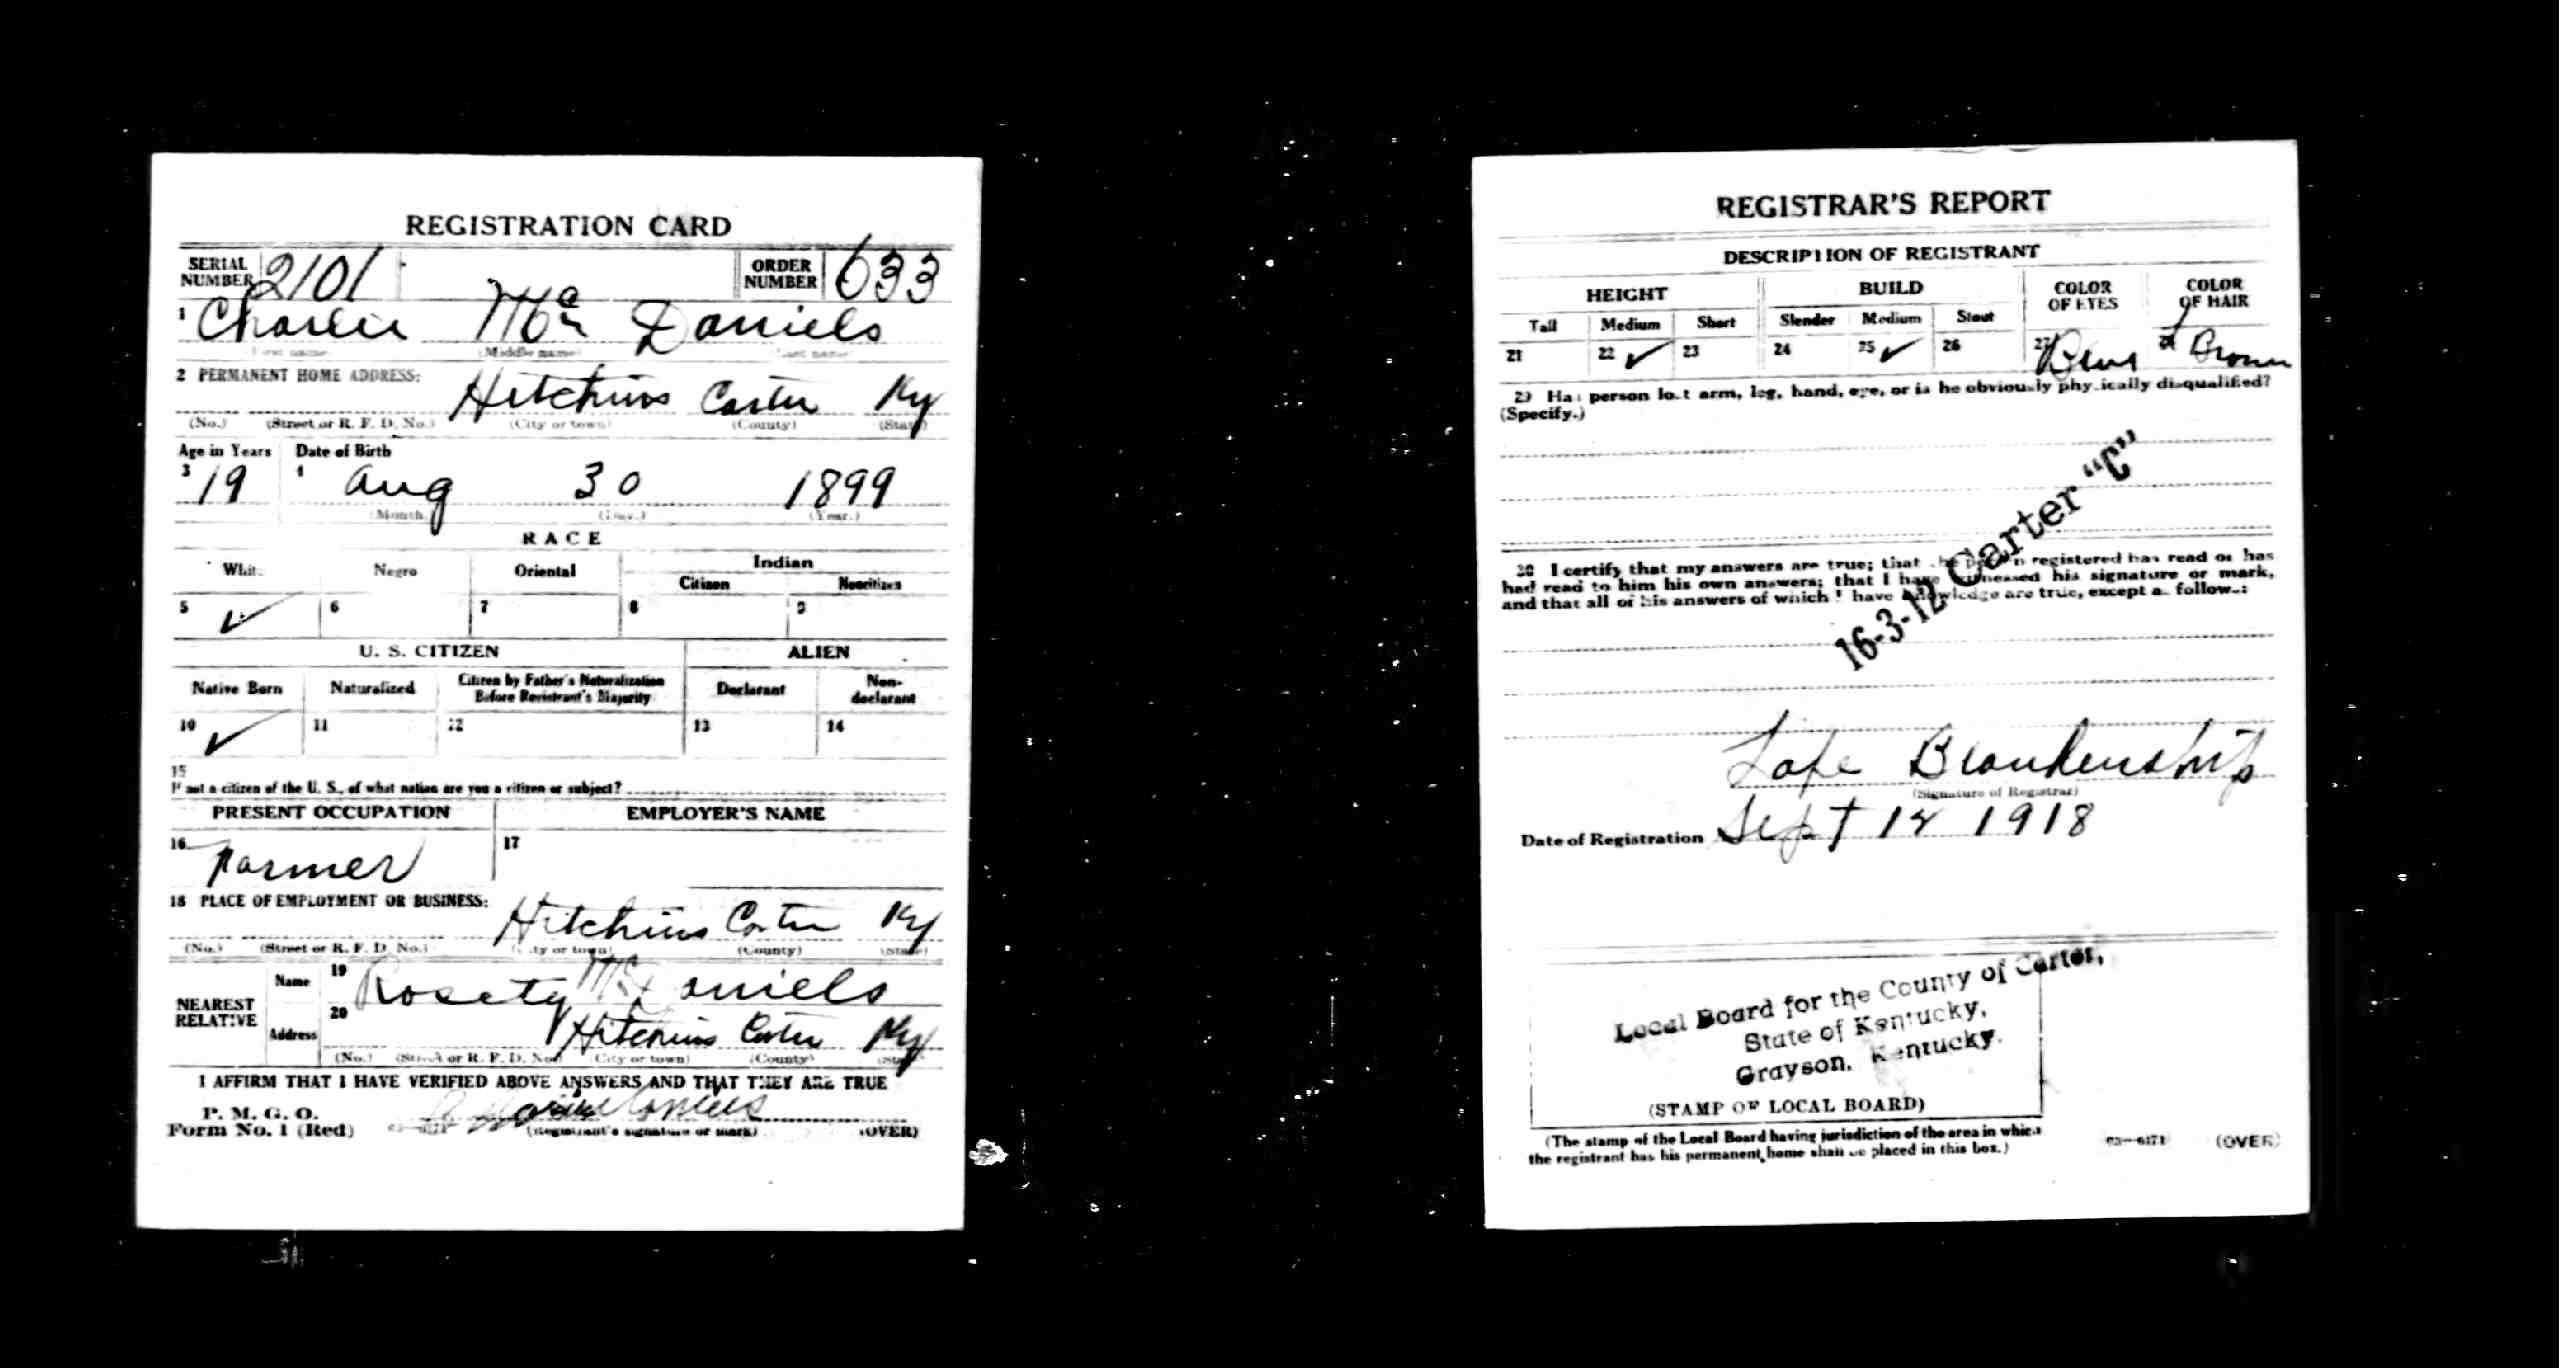 REGISTRATION CARD
SERIAL NUMBER 2101 ORDER NUMBER 633
1 Charlie Mc Daniels
(First name) (Middle name) (Last name)
2 PERMANENT HOME ADDRESS: Hitchins Carter Ky
(No.) (Street or R. F. D. No.) (City or town) (County) (State)
Age in Years Date of Birth
3 19 4 Aug 30 1899
(Month.) (Day.) (Year.)
RACE
White Negro Oriental Indian
Citizen Noncitizen
5 ✓ 6 7 8 9
U. S. CITIZEN ALIEN
Native Born Naturalized Citizen by Father's Naturalization Before Registrant's Majority Declarant Non-declarant
10 ✓ 11 12 13 14
15
If not a citizen of the U. S., of what nation are you a citizen or subject?
PRESENT OCCUPATION EMPLOYER'S NAME
16 Farmer 17
18 PLACE OF EMPLOYMENT OR BUSINESS: Hitchins Carter Ky
(No.) (Street or R. F. D. No.) (City or town) (County) (State)
NEAREST RELATIVE Name 19 Rosety McDaniels
Address 20 Hitchins Carter Ky
(No.) (Street or R. F. D. No.) (City or town) (County) (State)
I AFFIRM THAT I HAVE VERIFIED ABOVE ANSWERS AND THAT THEY ARE TRUE
P. M. G. O.
Form No. 1 (Red) (Registrant's signature or mark) (OVER)
REGISTRAR'S REPORT
DESCRIPTION OF REGISTRANT
HEIGHT BUILD COLOR OF EYES COLOR OF HAIR
Tall Medium Short Slender Medium Stout
21 22 ✓ 23 24 25 ✓ 26 27 Blue 28 Brown
29 Has person lost arm, leg, hand, eye, or is he obviously physically disqualified?
(Specify.)
16-3-12 Carter "C"
30 I certify that my answers are true; that the person registered has read or has
had read to him his own answers; that I have witnessed his signature or mark,
and that all of his answers of which I have knowledge are true, except as follows:
Lafe Blankenship
(Signature of Registrar)
Date of Registration Sept 12 1918
Local Board for the County of Carter,
State of Kentucky,
Grayson, Kentucky.
(STAMP OF LOCAL BOARD)
(The stamp of the Local Board having jurisdiction of the area in which
the registrant has his permanent home shall be placed in this box.)
03—6171 (OVER)